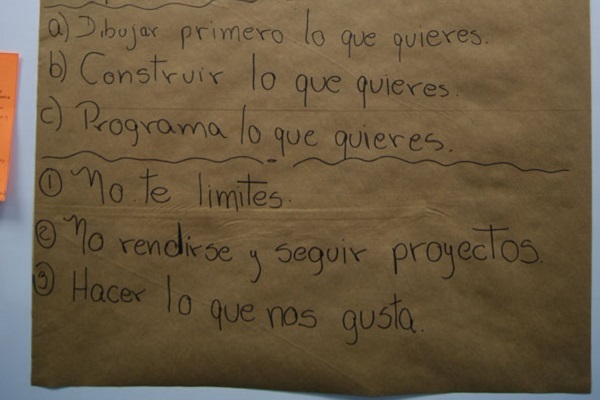 a) Dibujar primero lo que quieres.
b) Construir lo que quieres.
c) Programa lo que quieres.
① No te limites.
② No rendirse y seguir proyectos.
③ Hacer lo que nos gusta.